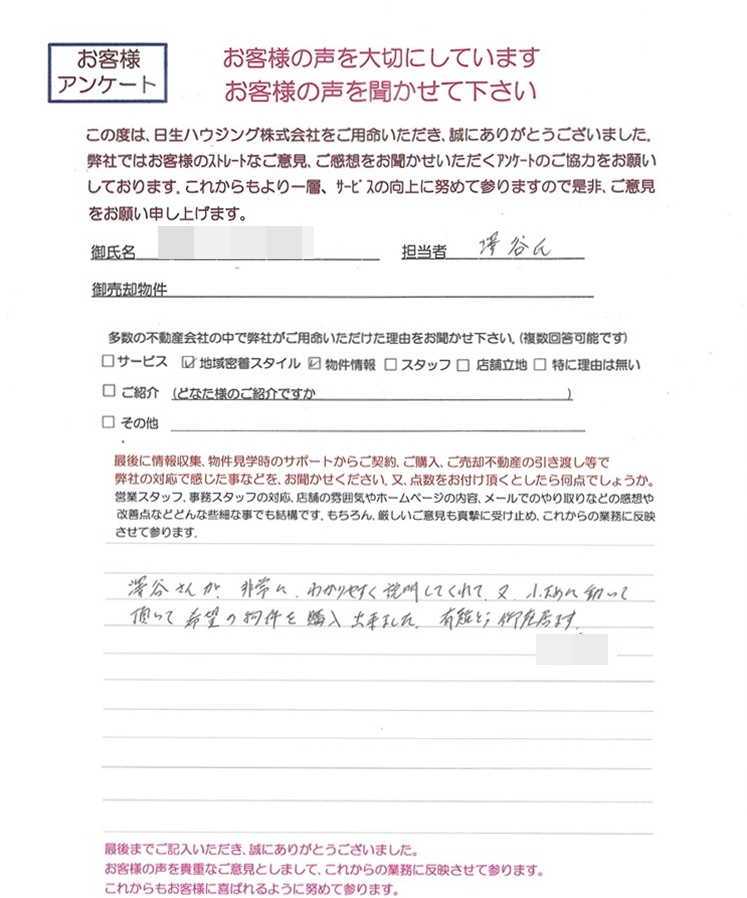 お客様
アンケート
お客様の声を大切にしています
お客様の声を聞かせて下さい
この度は、日生ハウジング株式会社をご用命いただき、誠にありがとうございました。
弊社ではお客様のストレートなご意見、ご感想をお聞かせいただくアンケートのご協力をお願い
しております。これからもより一層、サービスの向上に努めて参りますので是非、ご意見
をお願い申し上げます。
御氏名 担当者 澤谷氏
御売却物件
多数の不動産会社の中で弊社がご用命いただけた理由をお聞かせ下さい。(複数回答可能です)
□サービス ☑地域密着スタイル ☑物件情報 □スタッフ □店舗立地 □特に理由は無い
□ご紹介 (どなた様のご紹介ですか )
□その他
最後に情報収集、物件見学時のサポートからご契約、ご購入、ご売却不動産の引き渡し等で
弊社の対応で感じた事などを、お聞かせください。又、点数をお付け頂くとしたら何点でしょうか。
営業スタッフ、事務スタッフの対応、店舗の雰囲気やホームページの内容、メールでのやり取りなどの感想や
改善点などどんな些細な事でも結構です。もちろん、厳しいご意見も真摯に受け止め、これからの業務に反映
させて参ります。
澤谷さんが、非常に、わかりやすく説明してくれて、又、小まめに動いて
頂いて希望の物件を購入出来ました。有難とう御座居ます。
最後までご記入いただき、誠にありがとうございました。
お客様の声を貴重なご意見としまして、これからの業務に反映させて参ります。
これからもお客様に喜ばれるように努めて参ります。